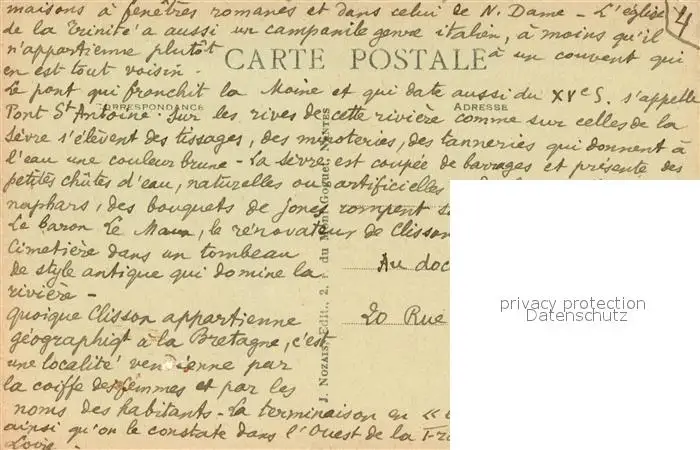 maisons à fenêtres romanes et dans celui de N. Dame - L'église
de la Trinité a aussi un campanile genre italien, à moins qu'il
n'appartienne plutôt à un couvent qui
CARTE POSTALE
en est tout voisin.
Le pont qui franchit la Moine et qui date aussi du XVe S. s'appelle
CORRESPONDANCE
ADRESSE
Pont St Antoine. Sur les rives de cette rivière comme sur celles de la
Sèvre s'élèvent des tissages, des minoteries, des tanneries qui donnent à
l'eau une couleur brune - La Sèvre est coupée de barrages et présente des
petites chûtes d'eau, naturelles ou artificielles
naphars, des bouquets de joncs rompent
Le baron Le Maun, le rénovateur de Clisson
Cimetière dans un tombeau
de style antique qui domine la
rivière -
Au doc
20 Rue
quoique Clisson appartienne
géographiqt à la Bretagne, c'est
une localité vendéenne par
la coiffe des femmes et par les
noms des habitants - La terminaison en «
ainsi qu'on le constate dans l'Ouest de la Fra
Loire -
J. Nozais, Edit., 2, du Mont-Goguet, NANTES
4
privacy protection
Datenschutz